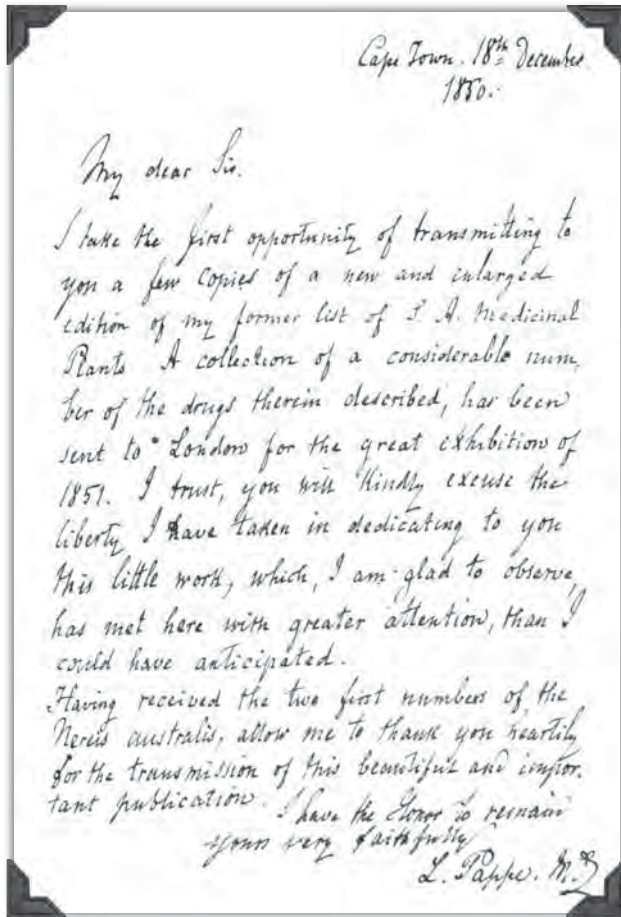 Cape Town. 18th December
1850.
My dear Sir.
I take the first opportunity of transmitting to
you a few Copies of a new and enlarged
edition of my former list of S. A. Medicinal
Plants A collection of a considerable num,
ber of the drugs therein described, has been
sent to London for the great exhibition of
1851. I trust, you will kindly excuse the
liberty I have taken in dedicating to you
this little work, which, I am glad to observe,
has met here with greater attention, than I
could have anticipated.
Having received the two first numbers of the
Nereis australis, allow me to thank you heartily
for the transmission of this beautiful and impor.
tant publication. I have the Honor to remain
yours very faithfully
L. Pappe. M.D